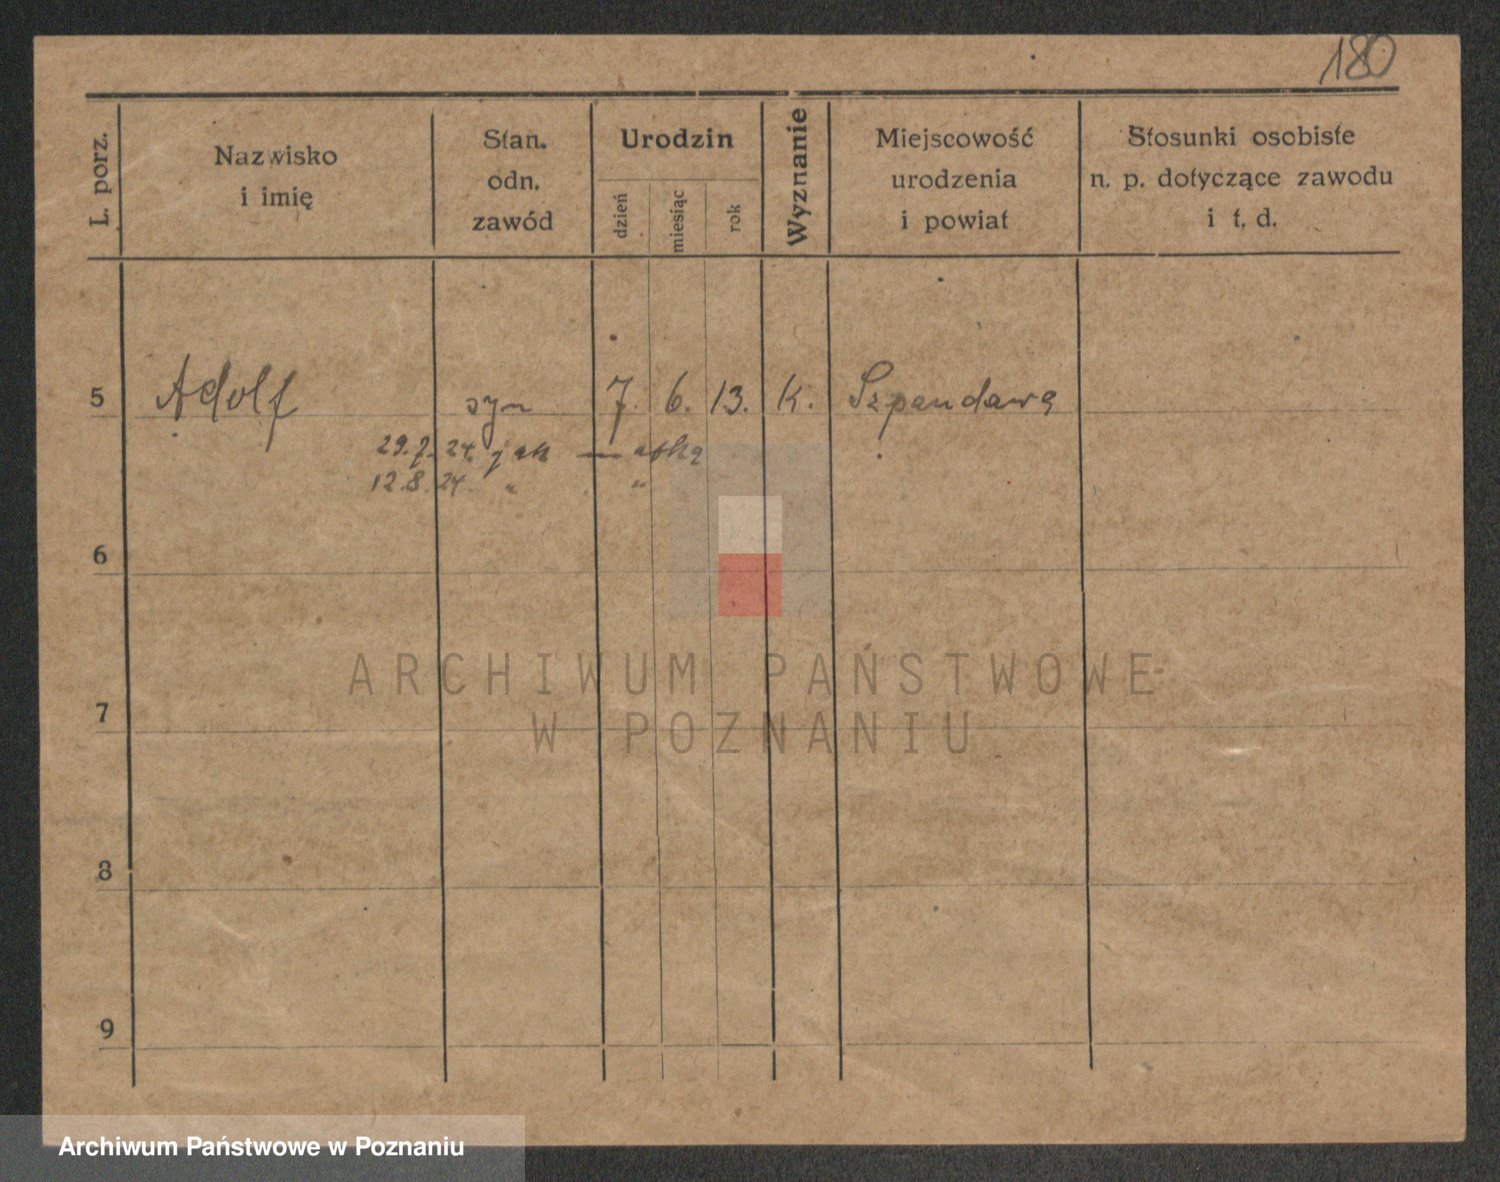 180
L. porz.
Nazwisko
i imię
Stan.
odn.
zawód
Urodzin
dzień
miesiąc
rok
Wyznanie
Miejscowość
urodzenia
i powiat
Stosunki osobiste
n. p. dotyczące zawodu
i t. d.
5 Adolf syn 7. 6. 13. K. Szpandawa
29.7.24. jak
12.8.24. " "
6
7
8
9
ARCHIWUM PAŃSTWOWE
W POZNANIU
Archiwum Państwowe w Poznaniu